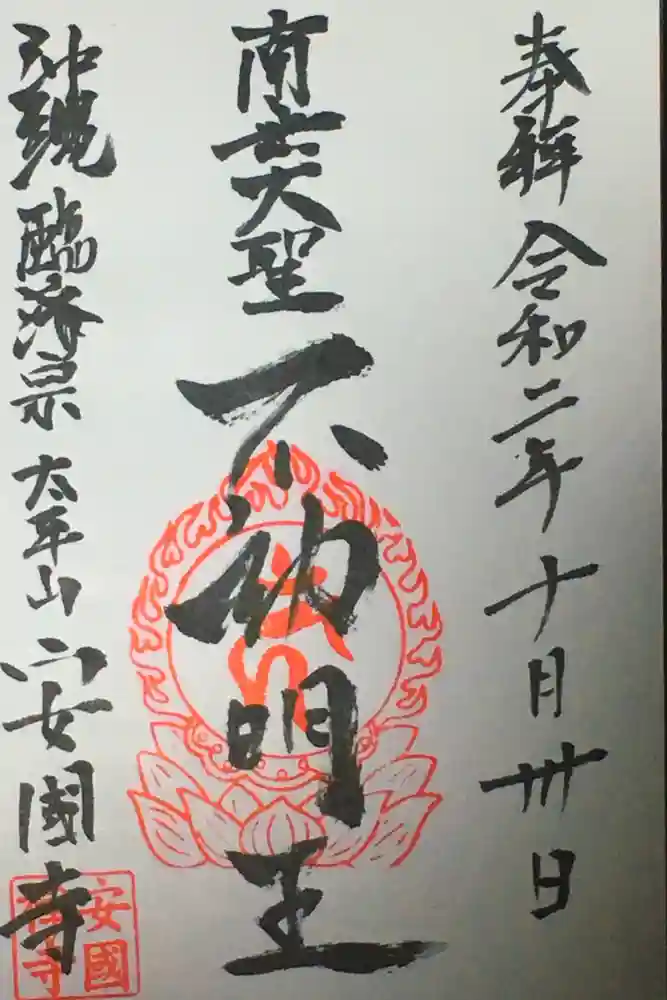 奉拝 令和二年十月卅日
南無大聖不動明王
沖縄 臨済宗 太平山 安國寺
安國禅寺